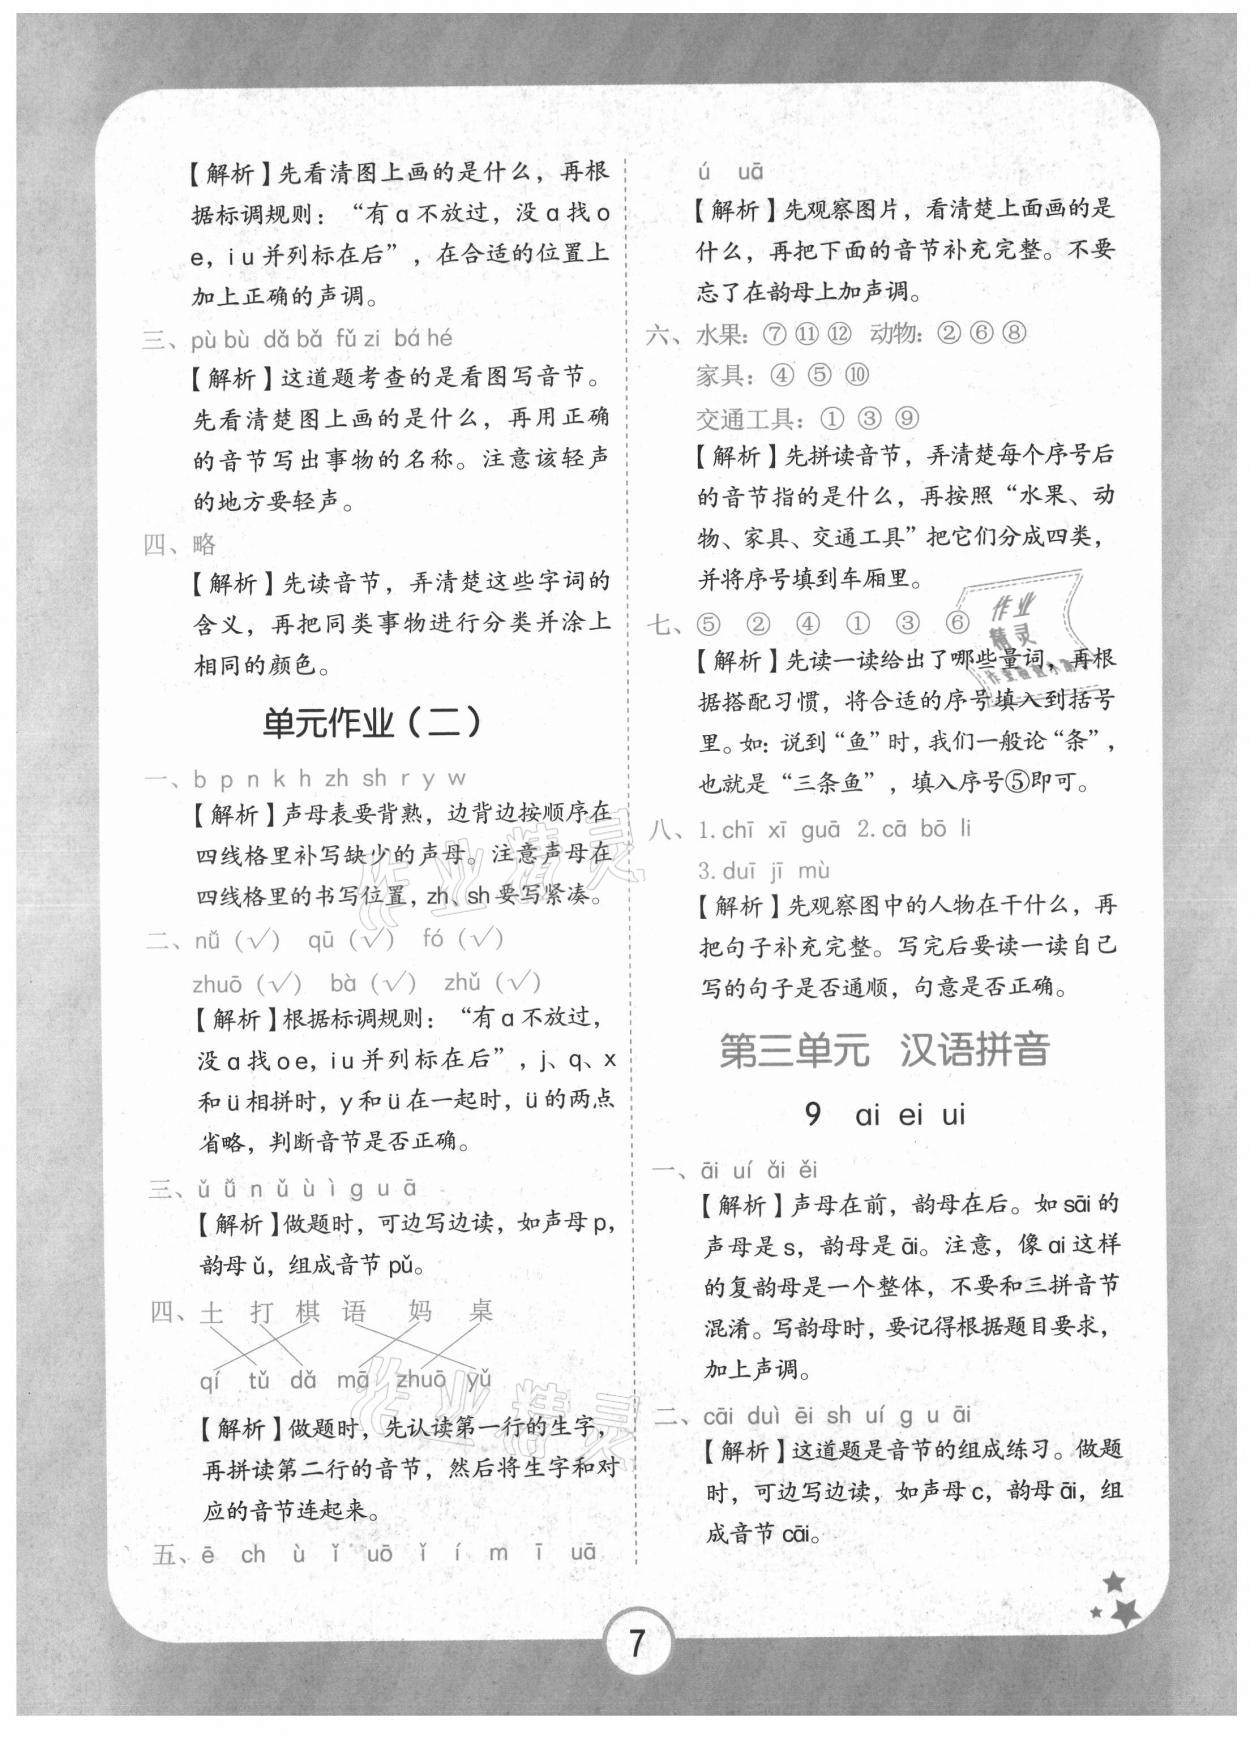 【解析】先看清图上画的是什么，再根
据标调规则：“有ɑ不放过，没ɑ找o
e，iu并列标在后”，在合适的位置上
加上正确的声调。
三、pù bù  dǎ bǎ  fǔ zi  bá hé
【解析】这道题考查的是看图写音节。
先看清楚图上画的是什么，再用正确
的音节写出事物的名称。注意该轻声
的地方要轻声。
四、略
【解析】先读音节，弄清楚这些字词的
含义，再把同类事物进行分类并涂上
相同的颜色。
单元作业（二）
一、b p n k h zh sh r y w
【解析】声母表要背熟，边背边按顺序在
四线格里补写缺少的声母。注意声母在
四线格里的书写位置，zh、sh要写紧凑。
二、nǚ（√） qū（√） fó（√）
zhuō（√） bà（√） zhǔ（√）
【解析】根据标调规则：“有ɑ不放过，
没ɑ找oe，iu并列标在后”，j、q、x
和ü相拼时，y和ü在一起时，ü的两点
省略，判断音节是否正确。
三、ǔ ǚ n ǔ ù ì g u ā
【解析】做题时，可边写边读，如声母p，
韵母ǔ，组成音节pǔ。
四、土 打 棋 语 妈 桌
qí tǔ dǎ mā zhuō yǔ
【解析】做题时，先认读第一行的生字，
再拼读第二行的音节，然后将生字和对
应的音节连起来。
五、ē ch ù ǐ uō ǐ í m ī uā
ú uā
【解析】先观察图片，看清楚上面画的是
什么，再把下面的音节补充完整。不要
忘了在韵母上加声调。
六、水果：⑦ ⑪ ⑫  动物：② ⑥ ⑧
家具：④ ⑤ ⑩
交通工具：① ③ ⑨
【解析】先拼读音节，弄清楚每个序号后
的音节指的是什么，再按照“水果、动
物、家具、交通工具”把它们分成四类，
并将序号填到车厢里。
七、⑤ ② ④ ① ③ ⑥
【解析】先读一读给出了哪些量词，再根
据搭配习惯，将合适的序号填入到括号
里。如：说到“鱼”时，我们一般论“条”，
也就是“三条鱼”，填入序号⑤即可。
八、1.chī xī guā 2.cā bō li
3.duī jī mù
【解析】先观察图中的人物在干什么，再
把句子补充完整。写完后要读一读自己
写的句子是否通顺，句意是否正确。
第三单元 汉语拼音
9 ai ei ui
一、āi uí ǎi ěi
【解析】声母在前，韵母在后。如sāi的
声母是s，韵母是āi。注意，像ai这样
的复韵母是一个整体，不要和三拼音节
混淆。写韵母时，要记得根据题目要求，
加上声调。
二、cāi duì ēi sh uí g u āi
【解析】这道题是音节的组成练习。做题
时，可边写边读，如声母c，韵母āi，组
成音节cāi。
7
作业
精灵
作业精灵
作业精灵